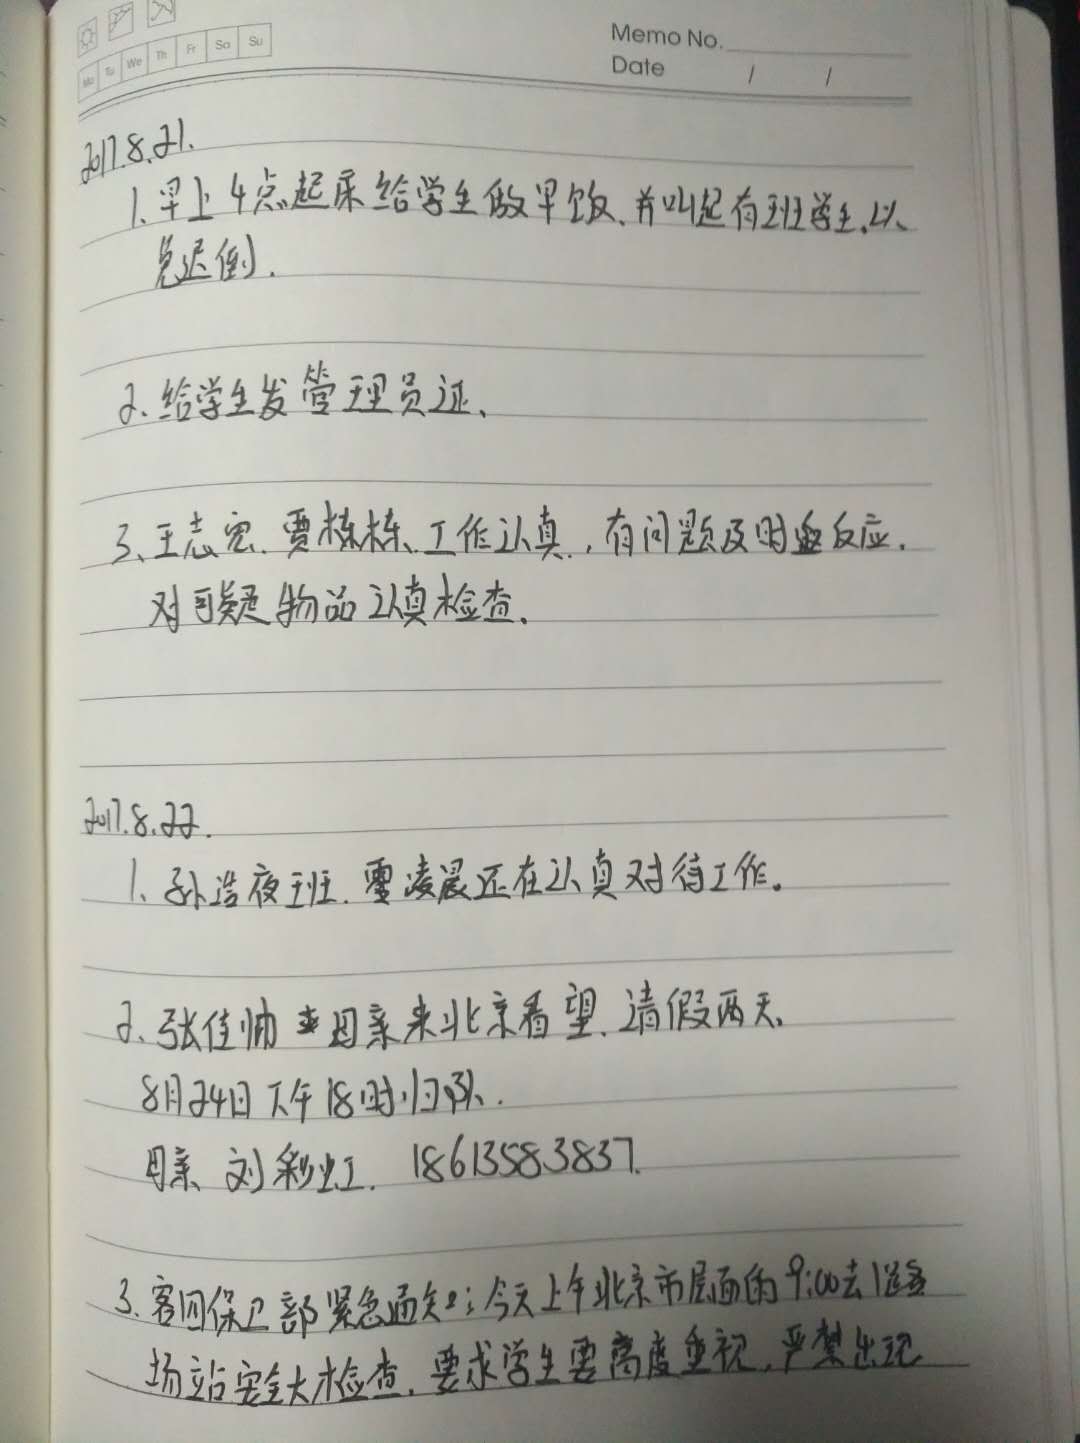 Mo Tu We Th Fr Sa Su
Memo No.
Date / /
2017.8.21.
1、早上4点起床给学生做早饭、并叫起有班学生、以
免迟倒.
2、给学生发管理员证、
3、王志宽、贾栋栋、工作认真.,有问题及时反应.
对可疑物品认真检查.
2017.8.22.
1、孙浩夜班.零凌晨还在认真对待工作。
2、张佳帅 母亲来北京看望.请假两天.
8月24日下午18时归队.
母亲 刘彩虹. 18613583837.
3、客团保卫部紧急通知:今天上午北京市层面的9:00去
场站安全大检查.要求学生要高度重视.严禁出现